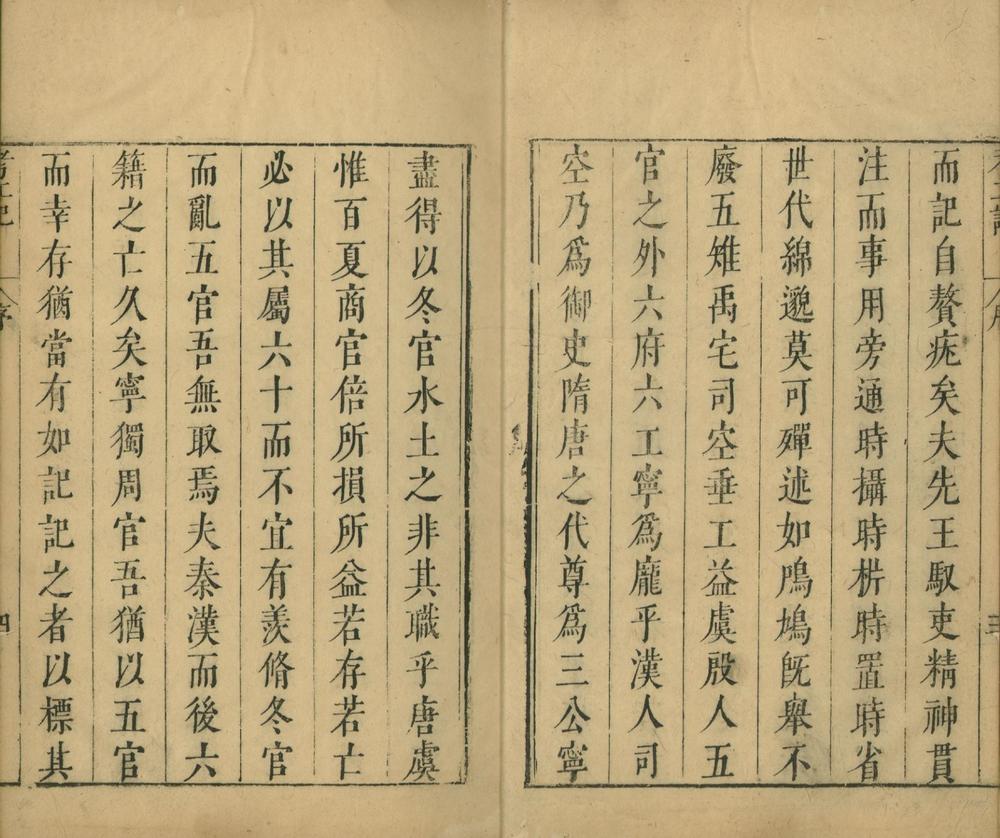 而記自贅疣矣夫先王馭吏精神貫
注而事用旁通時攝時栟時置時省
世代綿邈莫可殫述如鳲鳩旣舉不
廢五雉禹宅司空垂工益虞殷人五
官之外六府六工寧爲龐乎漢人司
空乃爲御史隋唐之代尊爲三公寧
盡得以冬官水土之非其職乎唐虞
惟百夏商官倍所損所益若存若亡
必以其屬六十而不宜有羨脩冬官
而亂五官吾無取焉夫秦漢而後六
籍之亡久矣寧獨周官吾猶以五官
而幸存猶當有如記記之者以標其
考工記 序 四